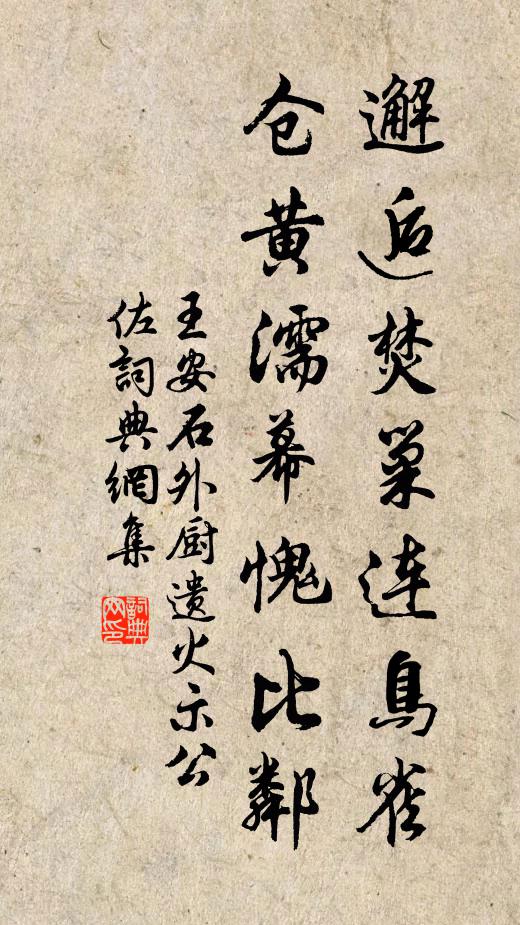 邂逅焚巢连鸟雀
仓黄濡幕愧比鄰
王安石外厨遗火示公
佐詞典網集
詞典
网印